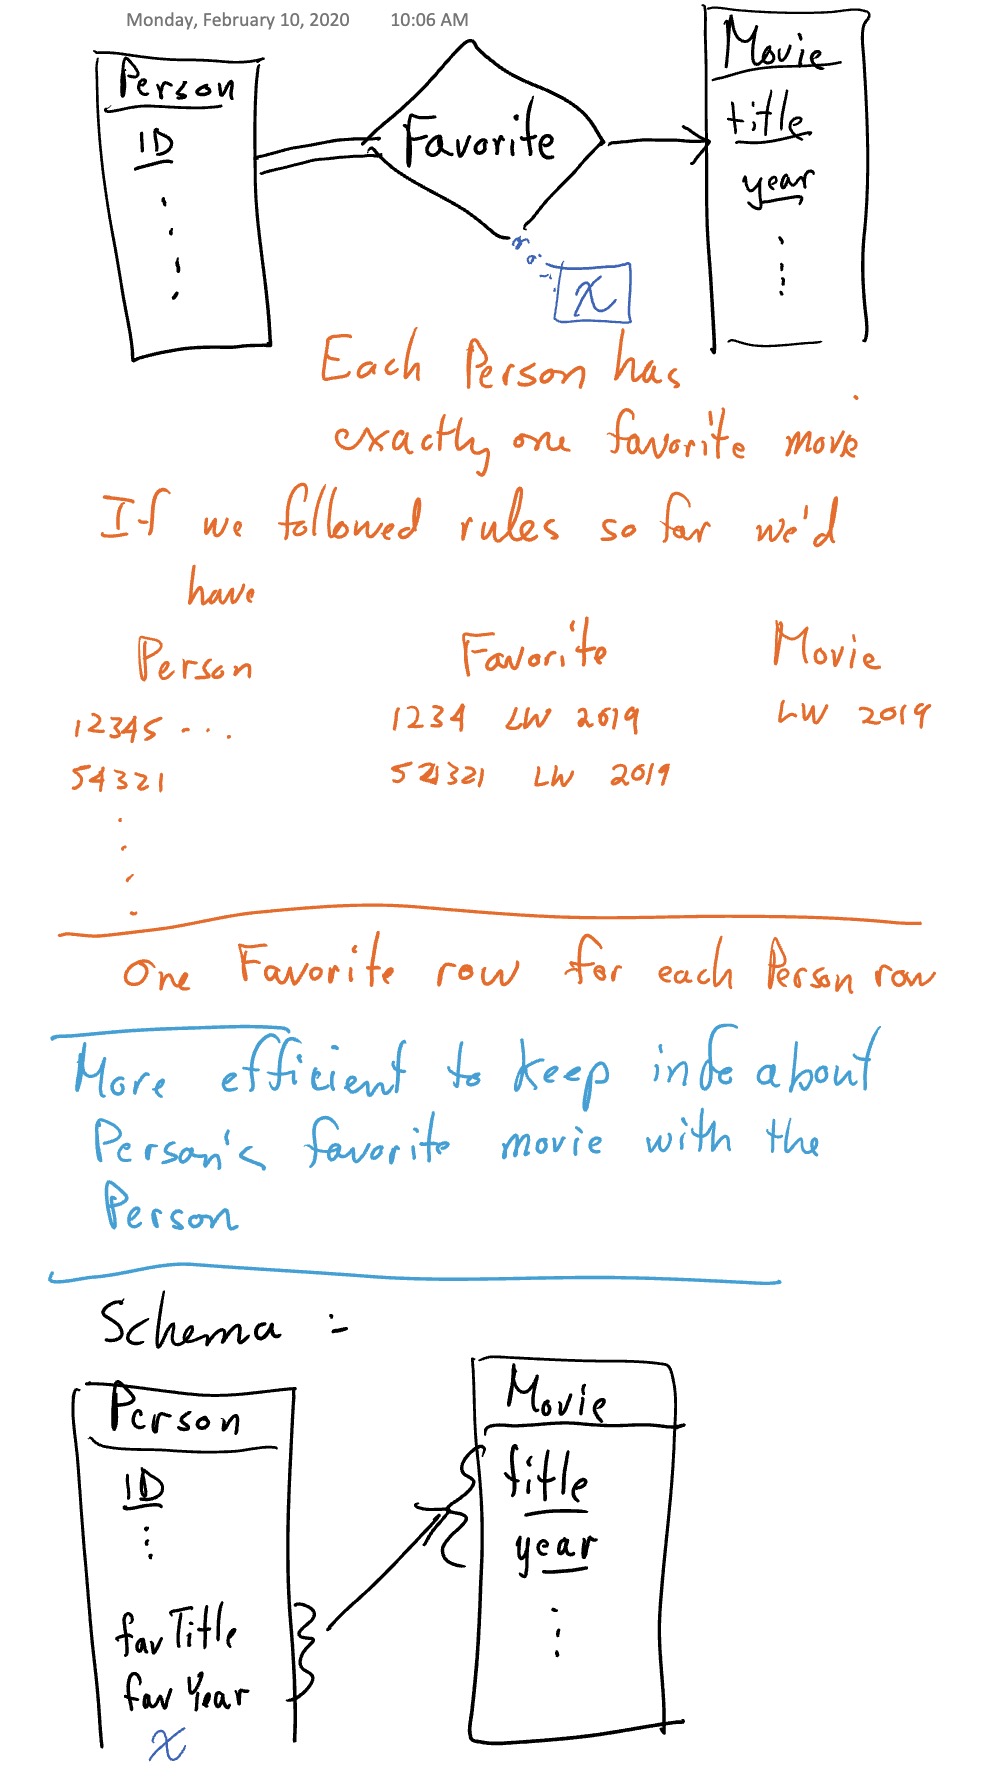 Monday, February 10, 2020 10:06 AM
Person
ID
Favorite
Movie
title
year
x
Each Person has
exactly one favorite move
If we followed rules so far we'd
have
Person Favorite Movie
12345 ... 1234 LW 2019 LW 2019
54321 521321 LW 2019
One Favorite row for each Person row
More efficient to keep info about
Person's favorite movie with the
Person
Schema :-
Person
ID
favTitle
favYear
x
Movie
title
year